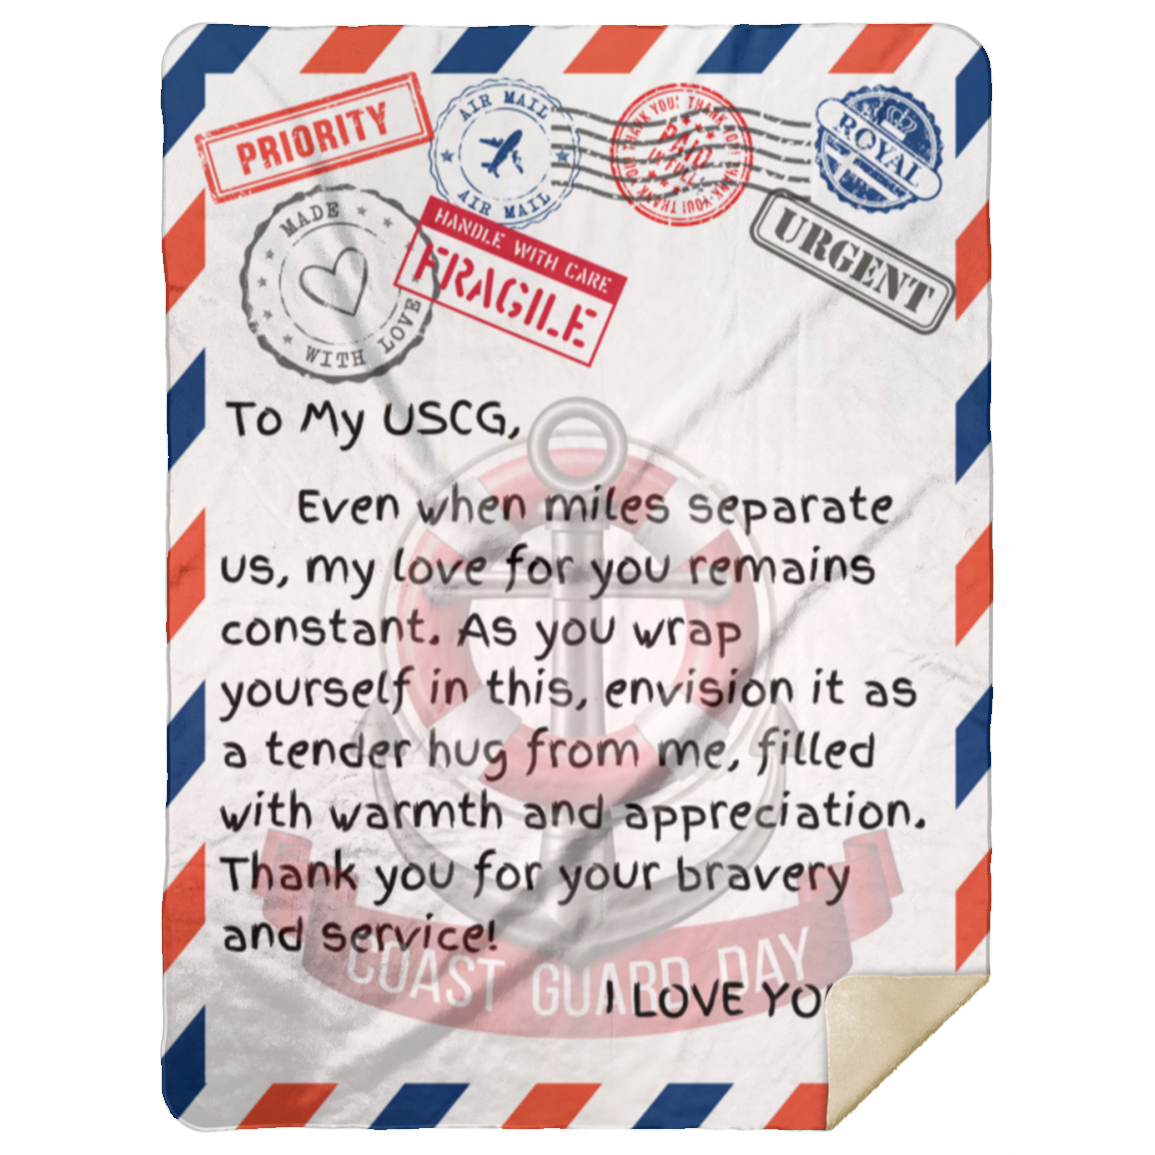 PRIORITY
AIR MAIL
AIR MAIL
THANK YOU! THANK YOU! THANK YOU! THANK YOU!
PAID
IN FULL
ROYAL
MADE
WITH LOVE
HANDLE WITH CARE
FRAGILE
URGENT
To My USCG,
Even when miles separate
us, my love for you remains
constant. As you wrap
yourself in this, envision it as
a tender hug from me, filled
with warmth and appreciation.
Thank you for your bravery
and service!
COAST GUARD DAY
I LOVE YO